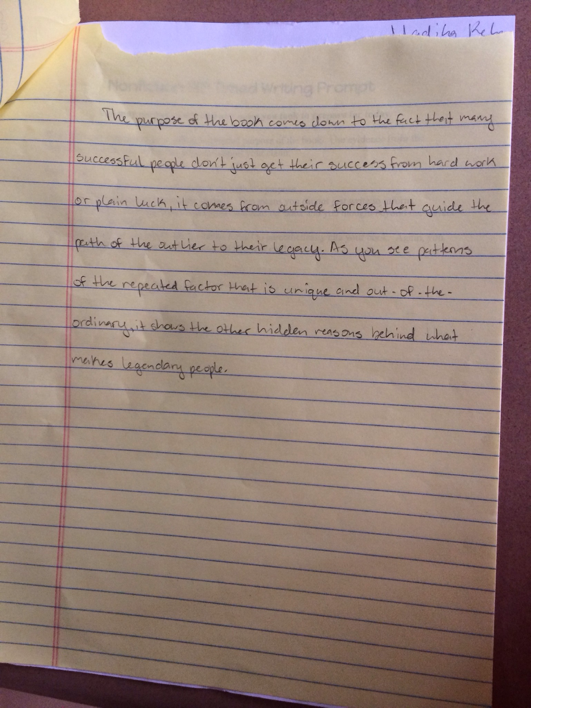 Nonfiction AP Timed Writing Prompt
The purpose of the book comes down to the fact that many
successful people don't just get their success from hard work
or plain luck, it comes from outside forces that guide the
path of the outlier to their legacy. As you see patterns
of the repeated factor that is unique and out-of-the-
ordinary, it shows the other hidden reasons behind what
makes legendary people.